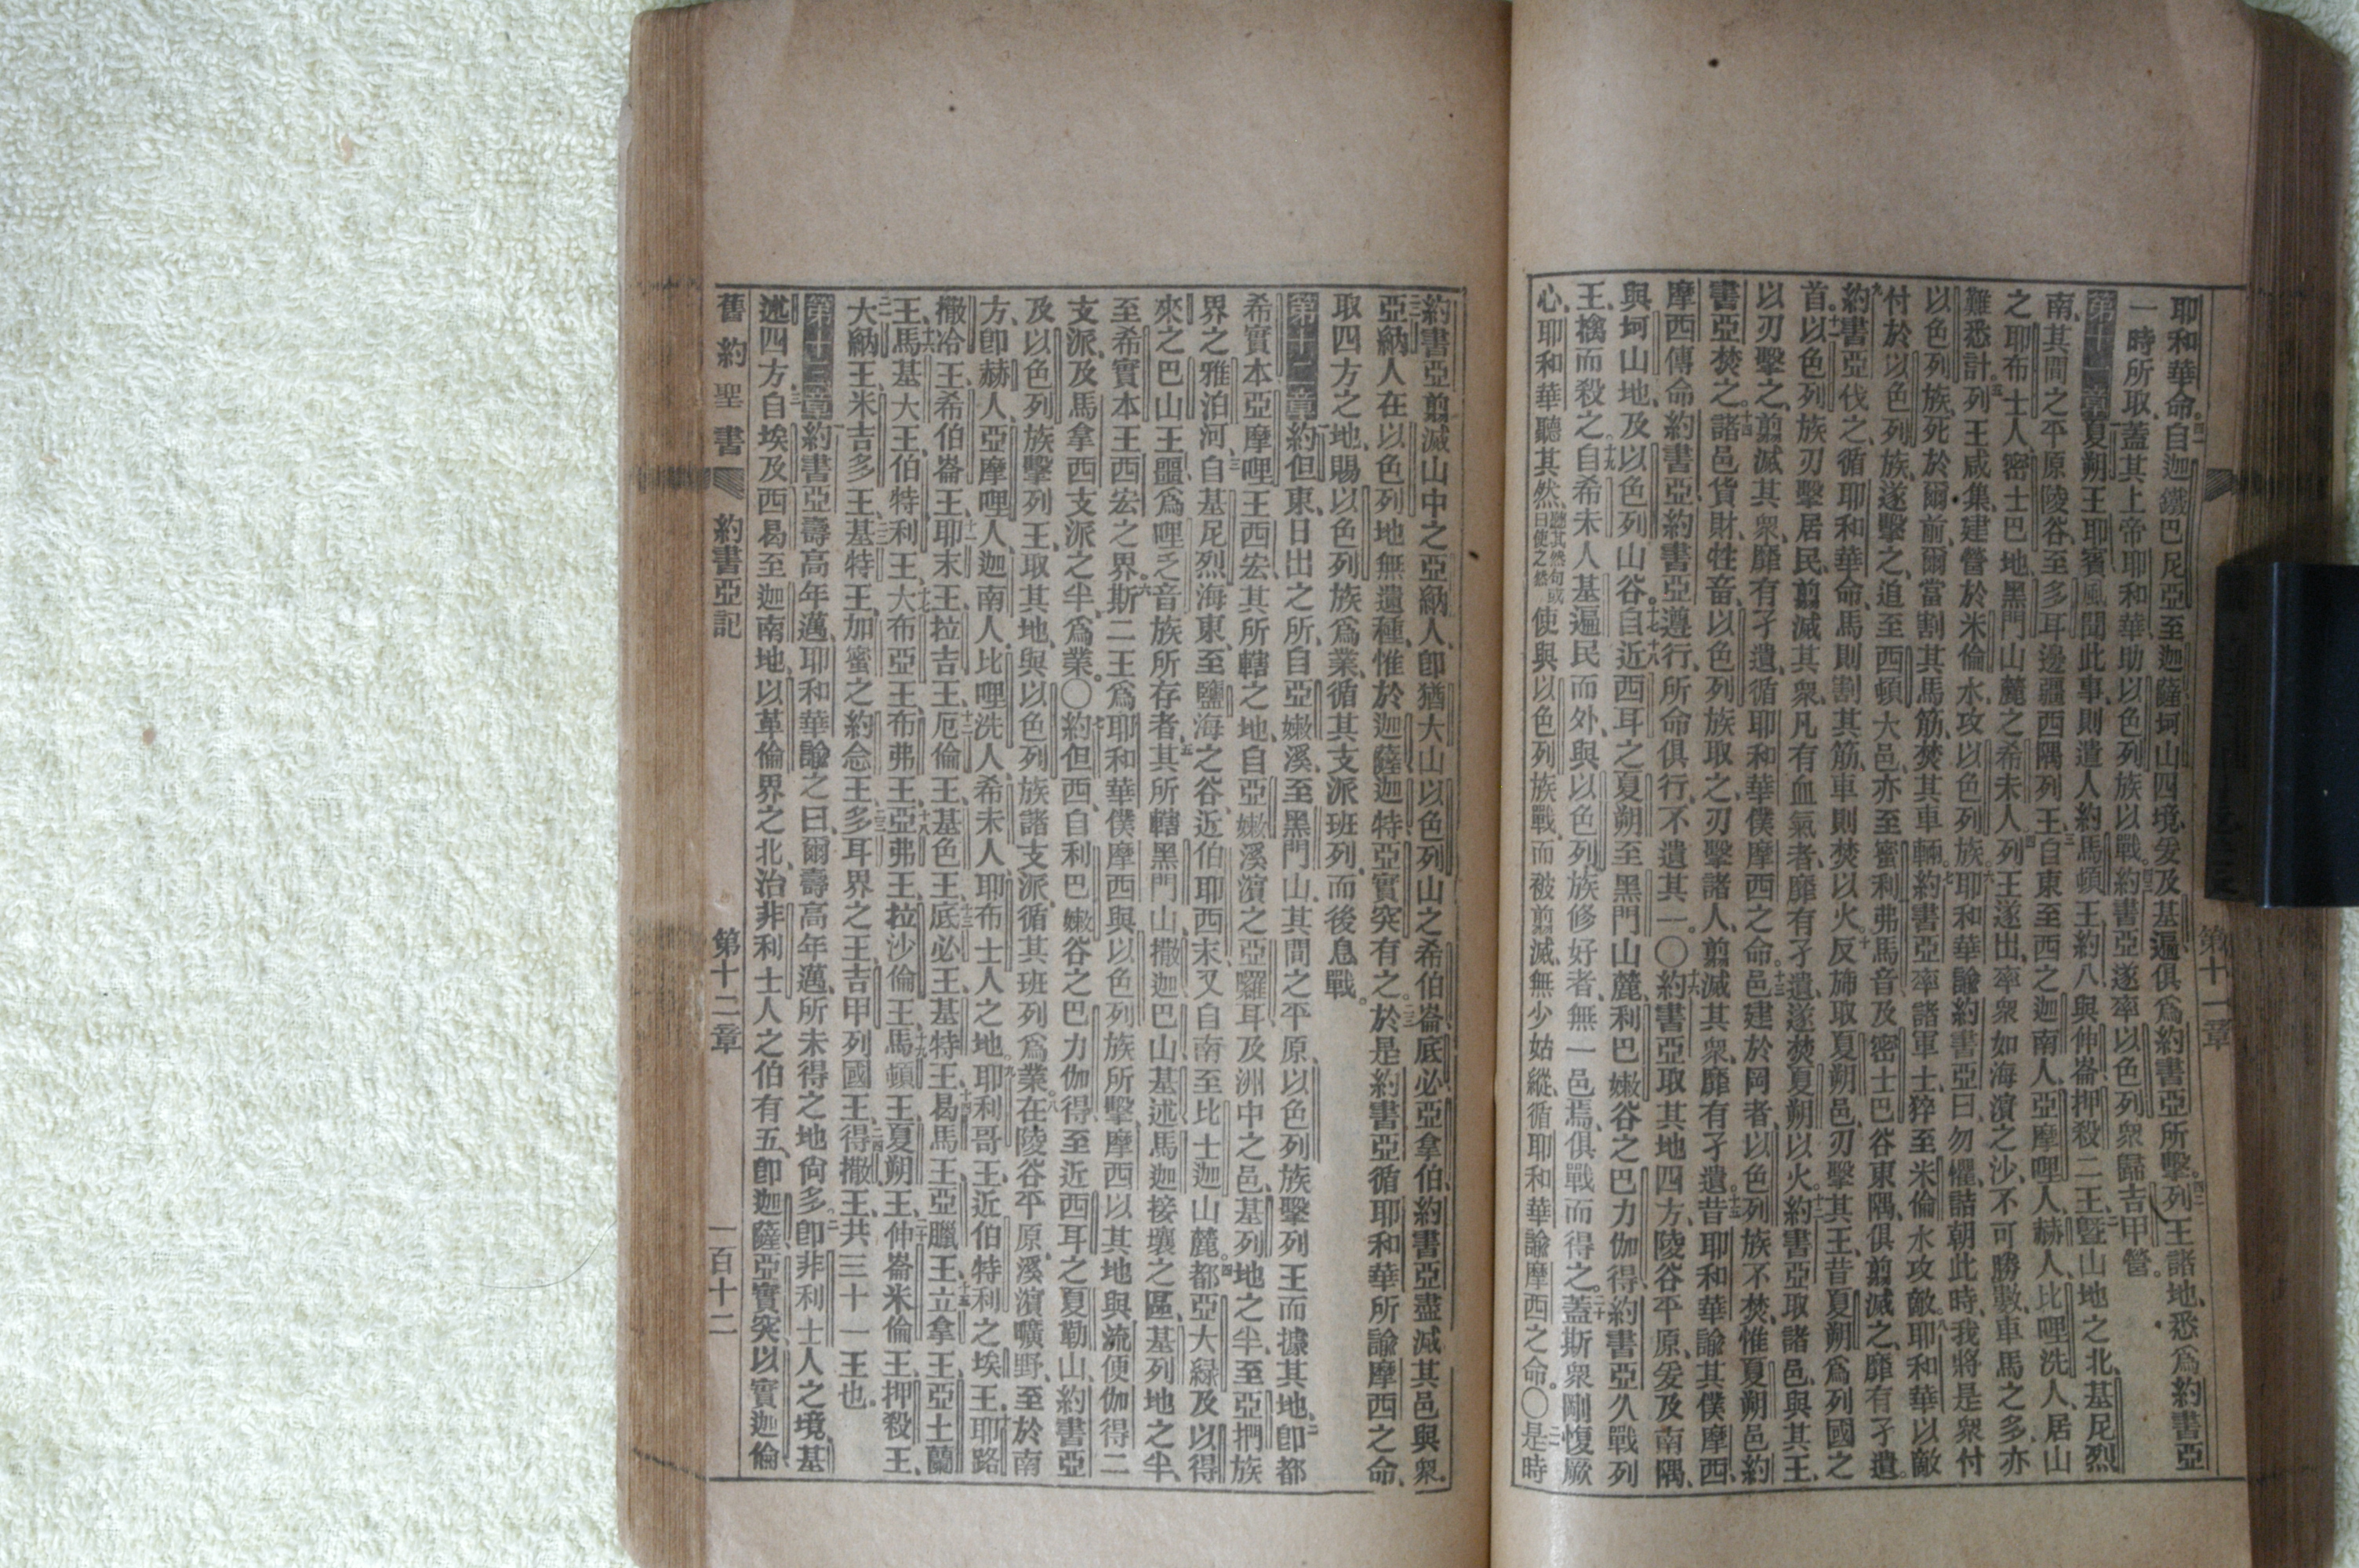 耶和華命自迦鐵巴尼亞至迦薩坷山四境爰及基遍俱爲約書亞所擊列王諸地悉爲約書亞
一時所取蓋其上帝耶和華助以色列族以戰約書亞遂率以色列衆歸吉甲營
夏朔王耶賓風聞此事則遣人約馬頓王約八與伸崙押殺二王曁山地之北基尼烈
南其間之平原陵谷至多耳邊疆西隅列王自東至西之迦南人亞摩哩人赫人比哩洗人居山
之耶布士人密士巴地黑門山麓之希未人列王遂出率衆如海濱之沙不可勝數車馬之多亦
難悉計列王咸集建營於米倫水攻以色列族耶和華諭約書亞曰勿懼詰朝此時我將是衆付
以色列族死於爾前爾當割其馬筋焚其車輛約書亞率諸軍士猝至米倫水攻敵耶和華以敵
付於以色列族遂擊之追至西頓大邑亦至蜜利弗馬音及密士巴谷東隅俱翦滅之靡有孑遺
約書亞伐之循耶和華命馬則割其筋車則焚以火反斾取夏朔邑刃擊其王昔夏朔爲列國之
首以色列族刃擊居民翦滅其衆凡有血氣者靡有孑遺遂焚夏朔以火約書亞取諸邑與其王
以刃擊之翦滅其衆靡有孑遺循耶和華僕摩西之命邑建於岡者以色列族不焚惟夏朔邑約
書亞焚之諸邑貨財牲畜以色列族取之刃擊諸人翦滅其衆靡有孑遺昔耶和華諭其僕摩西
摩西傳命約書亞約書亞遵行所命俱行不遺其一〇約書亞取其地四方陵谷平原爰及南隅
與坷山地及以色列山谷自近西耳之夏朔至黑門山麓利巴嫩谷之巴力伽得約書亞久戰列
王擒而殺之自希未人基遍民而外與以色列族修好者無一邑焉俱戰而得之蓋斯衆剛愎厥
心耶和華聽其然聽其然句或曰使之然使與以色列族戰而被翦滅無少姑縱循耶和華諭摩西之命〇是時
第十一章
約書亞翦滅山中之亞納人卽猶大山以色列山之希伯崙底必亞拿伯約書亞盡滅其邑與衆
亞納人在以色列地無遺種惟於迦薩迦特亞實突有之於是約書亞循耶和華所諭摩西之命
取四方之地賜以色列族爲業循其支派班列而後息戰
第十二章約但東日出之所自亞嫩溪至黑門山其間之平原以色列族擊列王而據其地卽都
希實本亞摩哩王西宏其所轄之地自亞嫩溪濱之亞囉耳及洲中之邑基列地之半至亞捫族
界之雅泊河自基尼烈海東至鹽海之谷近伯耶西末又自南至比士迦山麓都亞大綠及以得
來之巴山王噩爲哩乏音族所存者其所轄黑門山撒迦巴山基述馬迦接壤之區基列地之半
至希實本王西宏之界斯二王爲耶和華僕摩西與以色列族所擊摩西以其地與流便伽得二
支派及馬拿西支派之半爲業〇約但西自利巴嫩谷之巴力伽得至近西耳之夏勒山約書亞
及以色列族擊列王取其地與以色列族諸支派循其班列爲業在陵谷平原溪濱曠野至於南
方卽赫人亞摩哩人迦南人比哩洗人希未人耶布士人之地耶利哥王近伯特利之埃王耶路
撒冷王希伯崙王耶末王拉吉王厄倫王基色王底必王基特王曷馬王亞臘王立拿王亞土蘭
王馬基大王伯特利王大布亞王布弗王亞弗王拉沙倫王馬頓王夏朔王伸崙米倫王押殺王
大納王米吉多王基特王加蜜之約念王多耳界之王吉甲列國王得撒王共三十一王也
第十三章約書亞壽高年邁耶和華諭之曰爾壽高年邁所未得之地尙多卽非利士人之境基
述四方自埃及西曷至迦南地以革倫界之北治非利士人之伯有五卽迦薩亞實突以實迦倫
舊約聖書 約書亞記 第十二章 一百十二